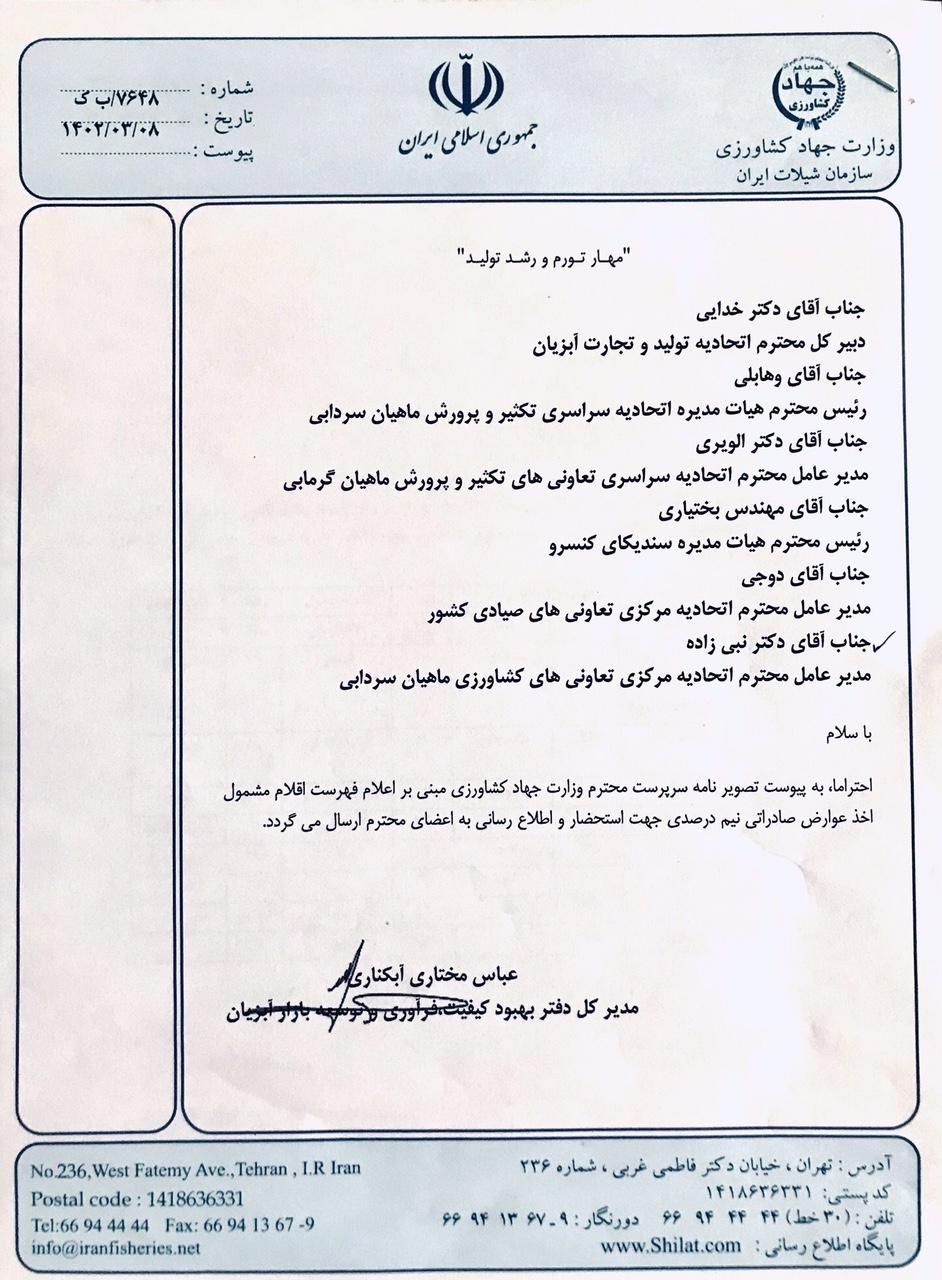 همه با هم
جهاد
کشاورزی
وزارت جهاد کشاورزی
سازمان شیلات ایران
جمهوری اسلامی ایران
شماره : ۷۶۴۸/ب ک
تاریخ : ۱۴۰۲/۰۳/۰۸
پیوست :
"مهار تورم و رشد تولید"
جناب آقای دکتر خدایی
دبیر کل محترم اتحادیه تولید و تجارت آبزیان
جناب آقای وهابلی
رئیس محترم هیات مدیره اتحادیه سراسری تکثیر و پرورش ماهیان سردابی
جناب آقای دکتر الویری
مدیر عامل محترم اتحادیه سراسری تعاونی های تکثیر و پرورش ماهیان گرمابی
جناب آقای مهندس بختیاری
رئیس محترم هیات مدیره سندیکای کنسرو
جناب آقای دوجی
مدیر عامل محترم اتحادیه مرکزی تعاونی های صیادی کشور
جناب آقای دکتر نبی زاده
مدیر عامل محترم اتحادیه مرکزی تعاونی های کشاورزی ماهیان سردابی
با سلام
احتراما، به پیوست تصویر نامه سرپرست محترم وزارت جهاد کشاورزی مبنی بر اعلام فهرست اقلام مشمول
اخذ عوارض صادراتی نیم درصدی جهت استحضار و اطلاع رسانی به اعضای محترم ارسال می گردد.
عباس مختاری آبکناری
مدیر کل دفتر بهبود کیفیت،فرآوری و توسعه بازار آبزیان
آدرس : تهران ، خیابان دکتر فاطمی غربی ، شماره ۲۳۶
کد پستی: ۱۴۱۸۶۳۶۳۳۱
تلفن : (۳۰ خط) ۴۴ ۴۴ ۹۴ ۶۶ دورنگار : ۹ـ ۶۷ ۱۳ ۹۴ ۶۶
پایگاه اطلاع رسانی : www.Shilat.com
No.236,West Fatemy Ave.,Tehran , I.R Iran
Postal code : 1418636331
Tel:66 94 44 44 Fax: 66 94 13 67 -9
info@iranfisheries.net